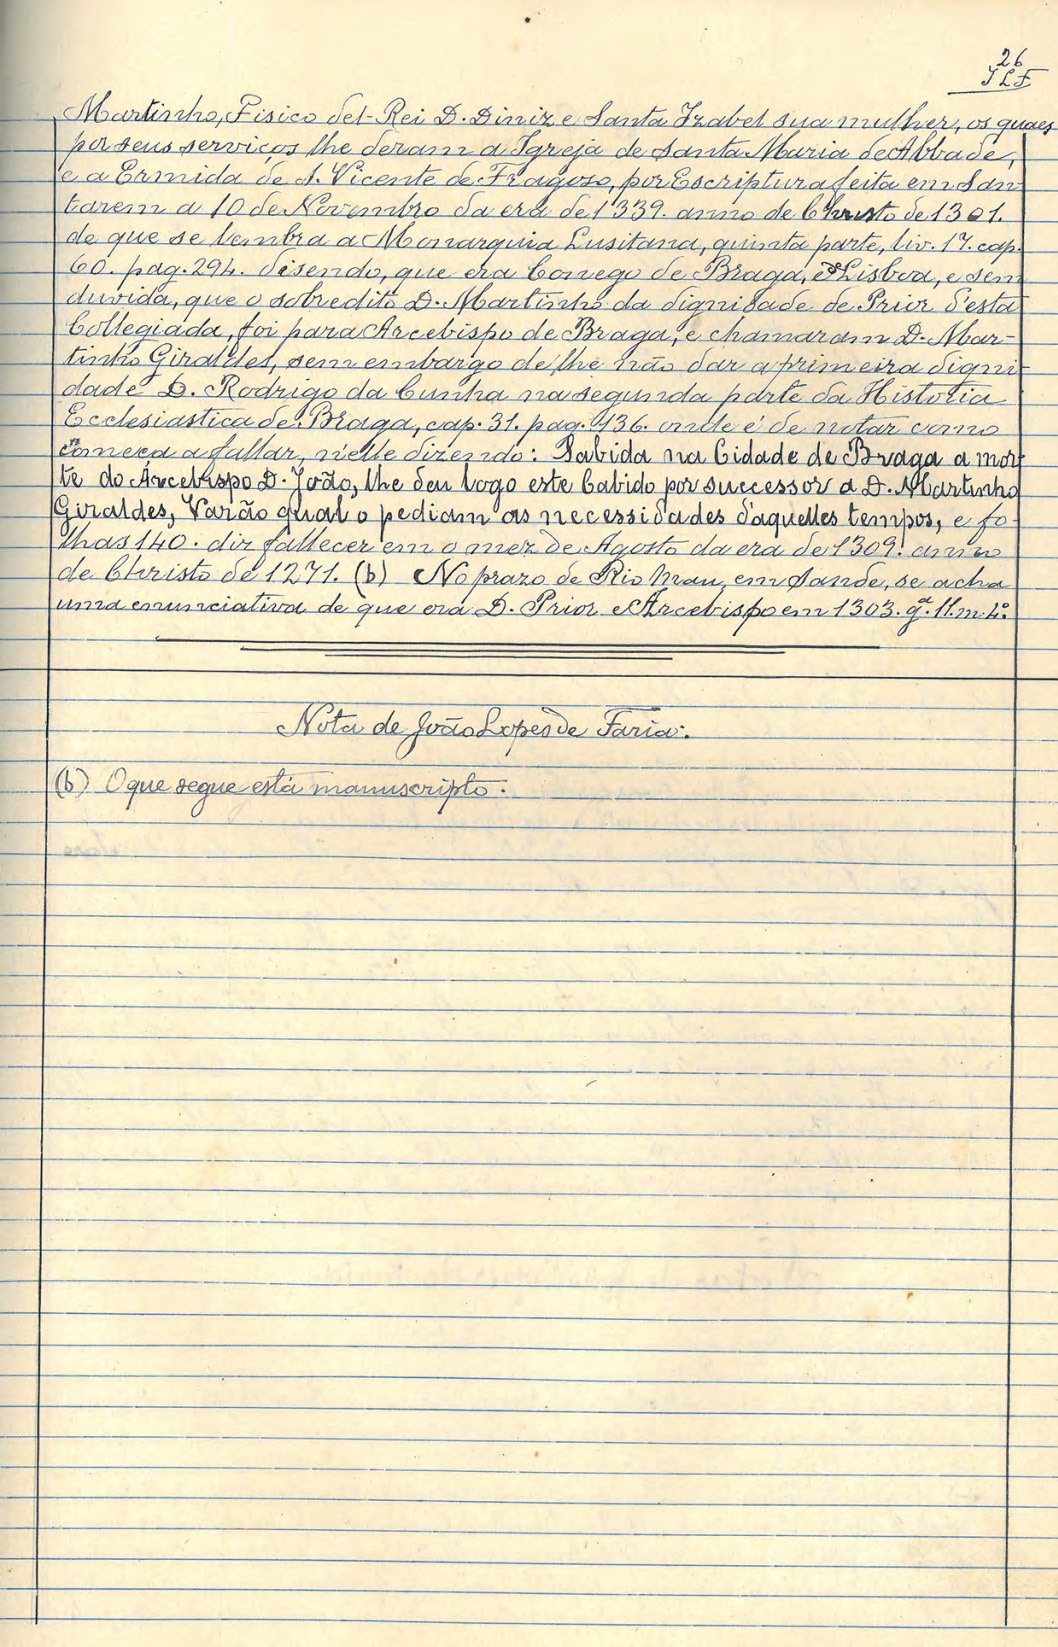 26
JLF
Martinho, Fisico del-Rei D. Diniz e Santa Izabel sua mulher, os quaes
por seus serviços lhe deram a Igreja de Santa Maria de Abbade,
e a Ermida de S. Vicente de Fragoso, por Escriptura feita em San-
tarem a 10 de Novembro da era de 1339. anno de Christo de 1301.
de que se lembra a Monarquia Lusitana, quinta parte, liv. 17. cap.
60. pag. 294. disendo, que era Conego de Braga, e Lisboa, e sem
duvida, que o sobredito D. Martinho da dignidade de Prior d'esta
Collegiada, foi para Arcebispo de Braga, e chamaram D. Mar-
tinho Giraldes, sem embargo de lhe não dar a primeira digni-
dade D. Rodrigo da Cunha na segunda parte da Historia
Ecclesiastica de Braga, cap. 31. pag. 136. onde é de notar como
começa a fallar, n'elle dizendo: Sabida na Cidade de Braga a mor-
te do Arcebispo D. João, lhe deu logo este Cabido por successor a D. Martinho
Giraldes, Varão qual o pediam as necessidades d'aquelles tempos, e fo-
lhas 140. diz fallecer em o mez de Agosto da era de 1309. anno
de Christo de 1271. (b) No prazo de Rio Mau, em Sande, se acha
uma enunciativa de que era D. Prior e Arcebispo em 1303. gª. 11. m. 4º.
Nota de João Lopes de Faria:
(b) O que segue está manuscripto.